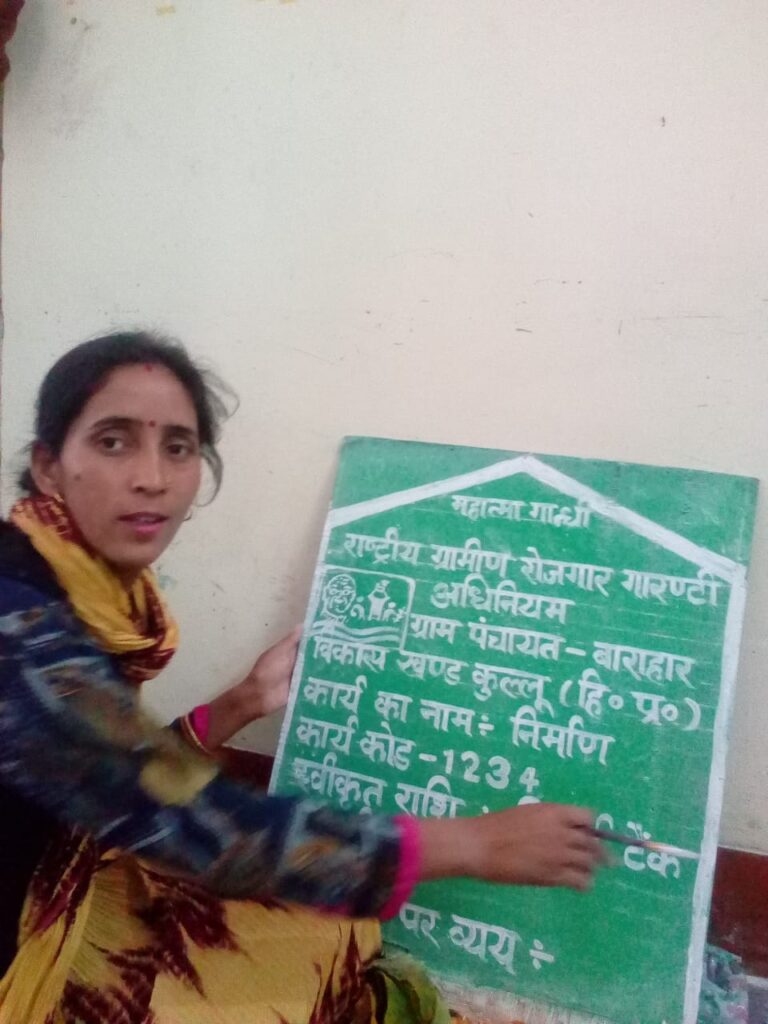 महात्मा गान्धी
राष्ट्रीय ग्रामीण रोजगार गारण्टी
अधिनियम
ग्राम पंचायत - बाराहार
विकास खण्ड कुल्लू (हि॰ प्र॰)
कार्य का नाम ÷ निर्माण
कार्य कोड - 1234
स्वीकृत राशि ÷
टैंक
पर व्यय ÷